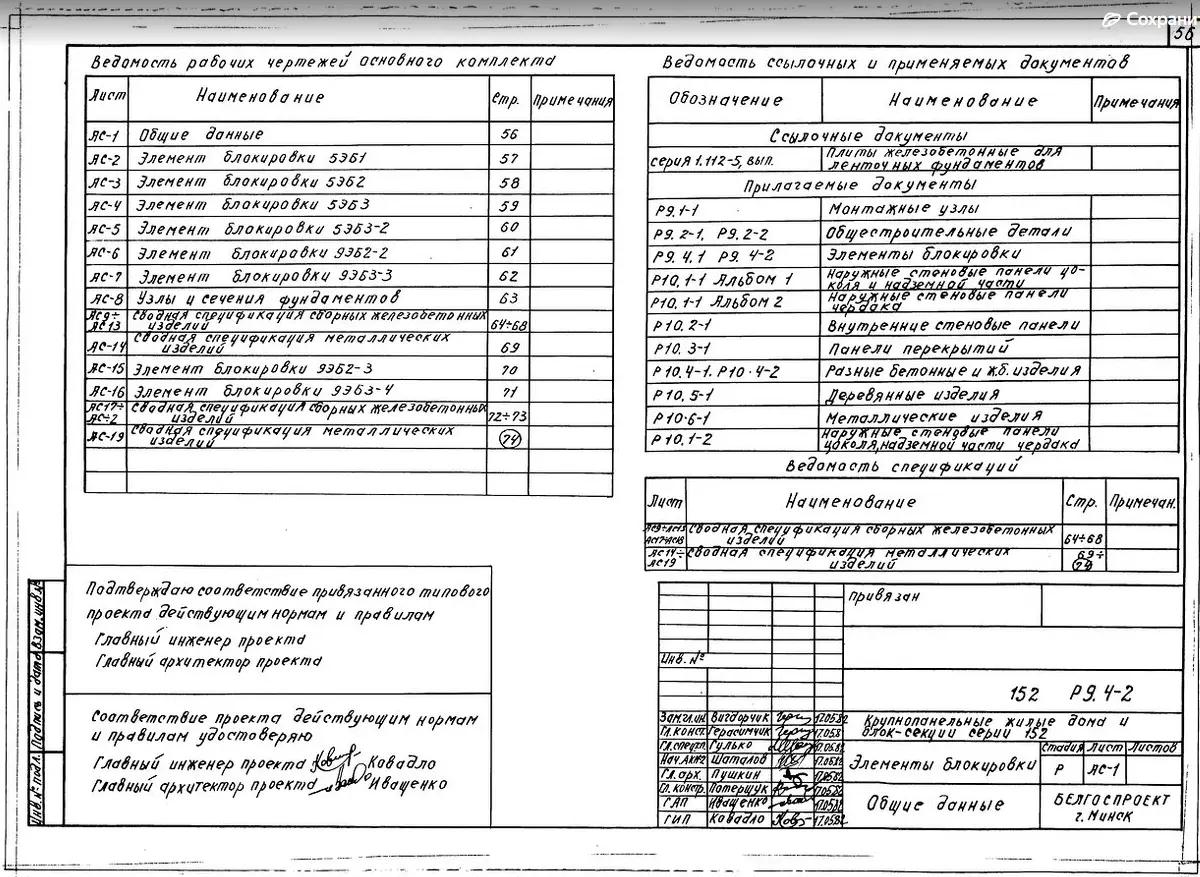 Сохрани
56
Ведомость рабочих чертежей основного комплекта
Лист Наименование Стр. Примечания
АС-1 Общие данные 56
АС-2 Элемент блокировки 5ЭБ1 57
АС-3 Элемент блокировки 5ЭБ2 58
АС-4 Элемент блокировки 5ЭБ3 59
АС-5 Элемент блокировки 5ЭБ3-2 60
АС-6 Элемент блокировки 9ЭБ2-2 61
АС-7 Элемент блокировки 9ЭБ3-3 62
АС-8 Узлы и сечения фундаментов 63
АС9÷ Сводная спецификация сборных железобетонных
АС13 изделий 64÷68
АС-14 Сводная спецификация металлических
изделий 69
АС-15 Элемент блокировки 9ЭБ2-3 70
АС-16 Элемент блокировки 9ЭБ3-4 71
АС17÷ Сводная спецификация сборных железобетонных
изделий 72÷73
АС-19 Сводная спецификация металлических
изделий 74
Ведомость ссылочных и применяемых документов
Обозначение Наименование Примечания
Ссылочные документы
серия 1.112-5, вып. Плиты железобетонные для
ленточных фундаментов
Прилагаемые документы
Р9.1-1 Монтажные узлы
Р9.2-1, Р9.2-2 Общестроительные детали
Р9.4.1 Р9.4-2 Элементы блокировки
Р10.1-1 Альбом 1 Наружные стеновые панели цо-
коля и надземной части
Р10.1-1 Альбом 2 Наружные стеновые панели
чердака
Р10.2-1 Внутренние стеновые панели
Р10.3-1 Панели перекрытий
Р10.4-1. Р10.4-2 Разные бетонные и ж.б. изделия
Р10.5-1 Деревянные изделия
Р10.6-1 Металлические изделия
Р10.1-2 Наружные стеновые панели
цоколя, надземной части чердака
Ведомость спецификаций
Лист Наименование Стр. Примечан.
АС9÷АС13 Сводная спецификация сборных железобетонных
АС17÷АС18 изделий 64÷68
АС14÷ Сводная спецификация металлических 69÷
АС19 изделий 74
Подтверждаю соответствие привязанного типового
проекта действующим нормам и правилам
Главный инженер проекта
Главный архитектор проекта
Соответствие проекта действующим нормам
и правилам удостоверяю
Главный инженер проекта Ковадло
Главный архитектор проекта Иващенко
Инв.№ подл. Подпись и дата Взам.инв.№
привязан
Инв. №
152 Р9.4-2
Зам.гл.ин. Вигдорчик 17.05.82
Гл.конст. Герасимчик 17.05.8
Гл.спец. Гулько 17.05.82
Нач. Шаталов 17.05.82
Гл.арх. Пушкин 17.05.82
Гл.констр. Потерщук 17.05.82
ГАП Иващенко 17.05.82
ГИП Ковадло 17.05.82
Крупнопанельные жилые дома и
блок-секции серии 152
Элементы блокировки
Стадия Лист Листов
Р АС-1
Общие данные
БЕЛГОСПРОЕКТ
г. Минск